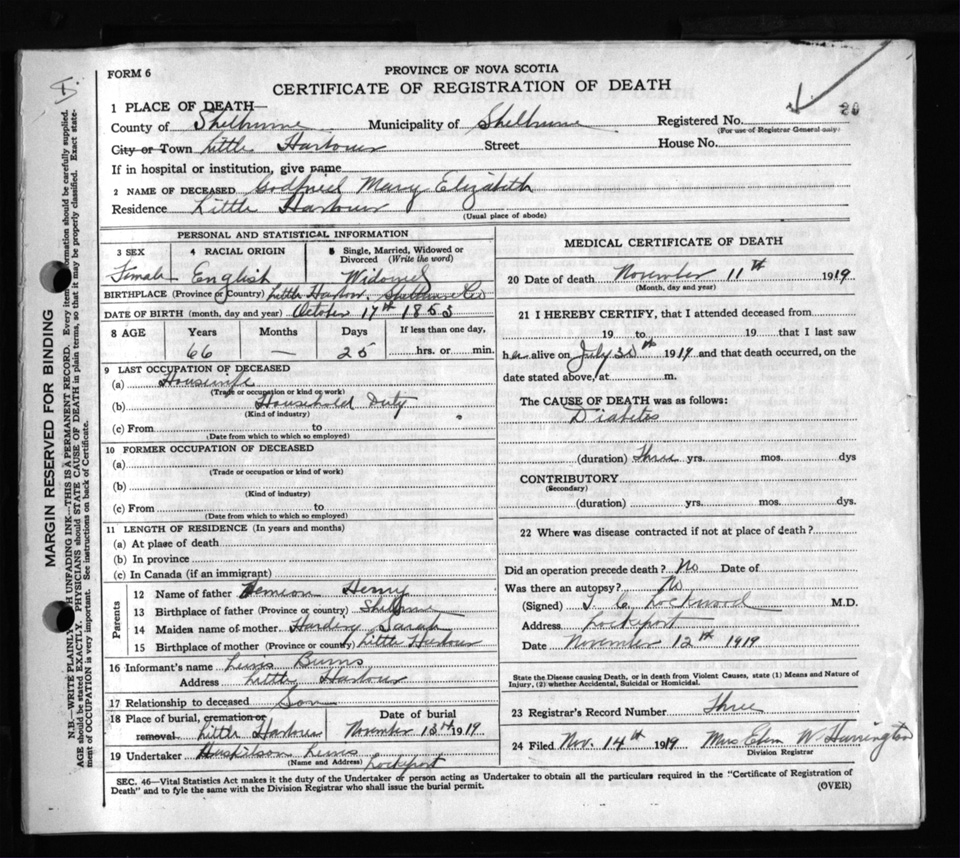 FORM 6
PROVINCE OF NOVA SCOTIA
CERTIFICATE OF REGISTRATION OF DEATH
20
1 PLACE OF DEATH—
County of Shelburne Municipality of Shelburne Registered No.
(For use of Registrar General only)
City or Town Little Harbour Street House No.
If in hospital or institution, give name
2 NAME OF DECEASED Godfried Mary Elizabeth
Residence Little Harbour
(Usual place of abode)
PERSONAL AND STATISTICAL INFORMATION
3 SEX 4 RACIAL ORIGIN 5 Single, Married, Widowed or Divorced (Write the word)
Female English Widowed
BIRTHPLACE (Province or Country) Little Harbour, Shelburne Co
DATE OF BIRTH (month, day and year) October 17th 1853
8 AGE Years Months Days If less than one day,
66 — 25 hrs. or min.
9 LAST OCCUPATION OF DECEASED
(a) Housewife
(Trade or occupation or kind or work)
(b) Household Duty
(Kind of industry)
(c) From to
(Date from which to which so employed)
10 FORMER OCCUPATION OF DECEASED
(a)
(Trade or occupation or kind of work)
(b)
(Kind of industry)
(c) From to
(Date from which to which so employed)
11 LENGTH OF RESIDENCE (In years and months)
(a) At place of death
(b) In province
(c) In Canada (if an immigrant)
Parents
12 Name of father Henry
13 Birthplace of father (Province or country) Shelburne
14 Maiden name of mother Harding Sarah
15 Birthplace of mother (Province or country) Little Harbour
16 Informant's name Lewis Burns
Address Little Harbour
17 Relationship to deceased Son
18 Place of burial, cremation or removal. Little Harbour
Date of burial November 13th 1919
19 Undertaker Huskilson Lewis
(Name and Address) Lockeport
MEDICAL CERTIFICATE OF DEATH
20 Date of death November 11th 1919
(Month, day and year)
21 I HEREBY CERTIFY, that I attended deceased from
19 to 19 that I last saw
her alive on July 30th 1919 and that death occurred, on the
date stated above, at m.
The CAUSE OF DEATH was as follows:
Diabetes
(duration) Three yrs. mos. dys
CONTRIBUTORY
(Secondary)
(duration) yrs. mos. dys.
22 Where was disease contracted if not at place of death?
Did an operation precede death? No Date of
Was there an autopsy? No
(Signed) Lockwood M.D.
Address Lockeport
Date November 12th 1919
State the Disease causing Death, or in death from Violent Causes, state (1) Means and Nature of
Injury, (2) whether Accidental, Suicidal or Homicidal.
23 Registrar's Record Number Three
24 Filed Nov. 14th 1919 Mrs W Harrington
Division Registrar
SEC. 46—Vital Statistics Act makes it the duty of the Undertaker or person acting as Undertaker to obtain all the particulars required in the "Certificate of Registration of
Death" and to fyle the same with the Division Registrar who shall issue the burial permit.
(OVER)
MARGIN RESERVED FOR BINDING
N.B.—WRITE PLAINLY UNFADING INK—THIS IS A PERMANENT RECORD. Every item information should be carefully supplied.
AGE should be stated EXACTLY. PHYSICIANS should STATE CAUSE OF DEATH in plain terms, so that it may be properly classified. Exact state-
ment of OCCUPATION is very important. See instructions on back of Certificate.